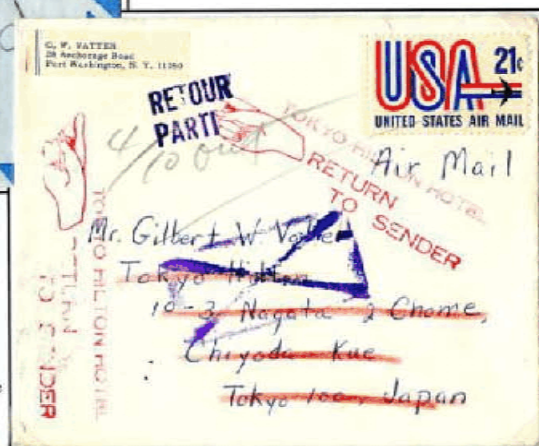 G. W. VATTER
28 Anchorage Road
Port Washington, N. Y. 11050
USA 21c
UNITED STATES AIR MAIL
RETOUR
PARTI
4/10 out
TOKYO HILTON HOTEL
RETURN
TO SENDER
Air Mail
Mr. Gilbert W. Vatter
Tokyo Hilton
10-3 Nagata 2 Chome,
Chiyoda Kue
Tokyo 100, Japan
TOKYO HILTON HOTEL
RETURN
TO SENDER